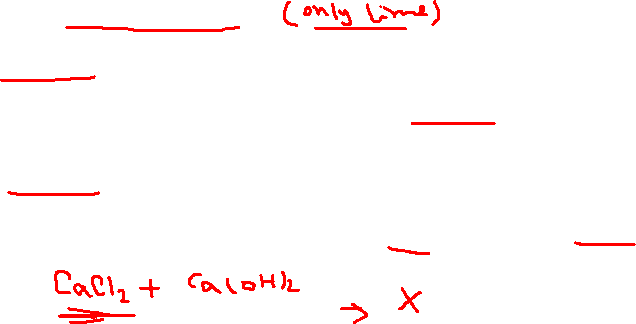 (only lime)
CaCl₂ + Ca(OH)₂ → X